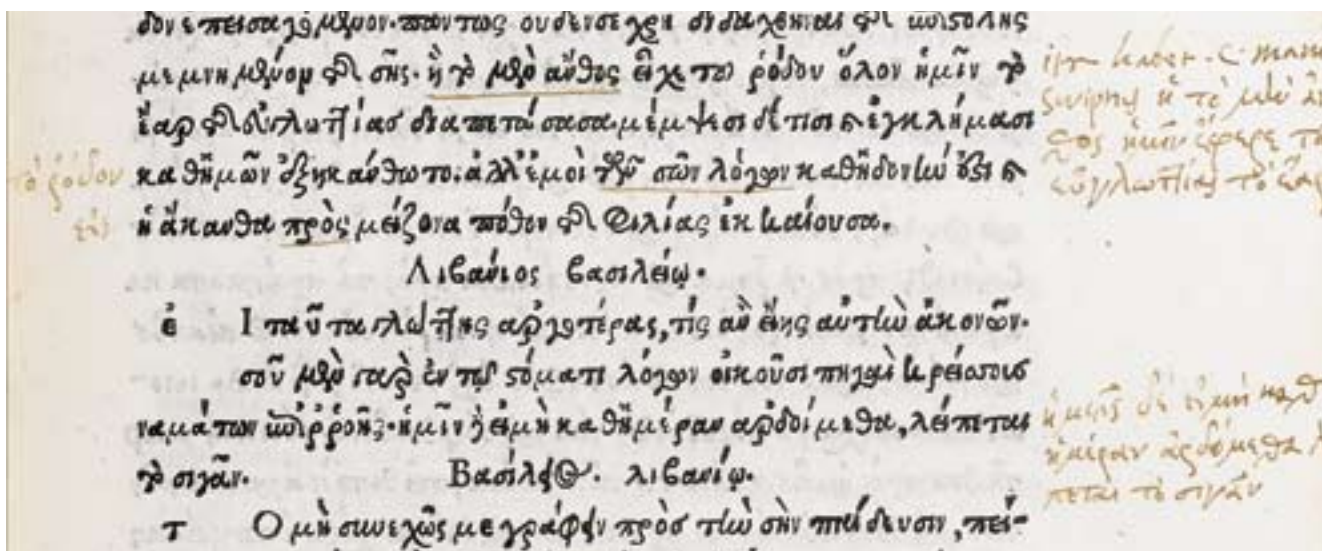 δον ἐπεισαγόμενον. πάντως οὐδέν σε χρὴ διδαχθῆναι τῆς ἐπιστολῆς
μεμνημένον τῆς σῆς. ἢ τὸ μὲν ἄνθος εἶχε τοῦ ῥόδου ὅλον ἡμῖν τὸ
ἔαρ τῆς εὐγλωττίας διαπετάσασα. μέμψεσι δέ τισι καὶ ἐγκλήμασι
τὸ ῥόδον καθ' ἡμῶν ἐξηκάνθωτο. ἀλλ' ἐμοὶ τῶν σῶν λόγων καθ' ἡδονὴν ἐστι καὶ
ἡ ἄκανθα πρὸς μείζονα πόθον τῆς φιλίας ἐκκαίουσα.
Λιβάνιος βασιλείῳ.
ἐ Ι ταῦτα γλώττης ἀργοτέρας, τίς ἂν εἴης αὐτὴν ἀκονῶν.
σοῦ μὲν γὰρ ἐν τῷ στόματι λόγων οἰκοῦσι πηγαὶ κρείττους
ναμάτων ἐπιρροῆς. ἡμῖν δ' εἰ μὴ καθ' ἡμέραν ἀρδοίμεθα, λείπεται
τὸ σιγᾶν. Βασίλειος. λιβανίῳ.
τ Ο μὴ συνεχῶς με γράφειν πρὸς τὴν σὴν παίδευσιν, πεί-
ἢ τὸ μὲν
ἡμῖν ἔφερε
εὐγλωττίας τὸ ἔαρ
ἡμεῖς δὲ εἰ μὴ καθ'
ἡμέραν ἀρδοίμεθα
πεται τὸ σιγᾶν